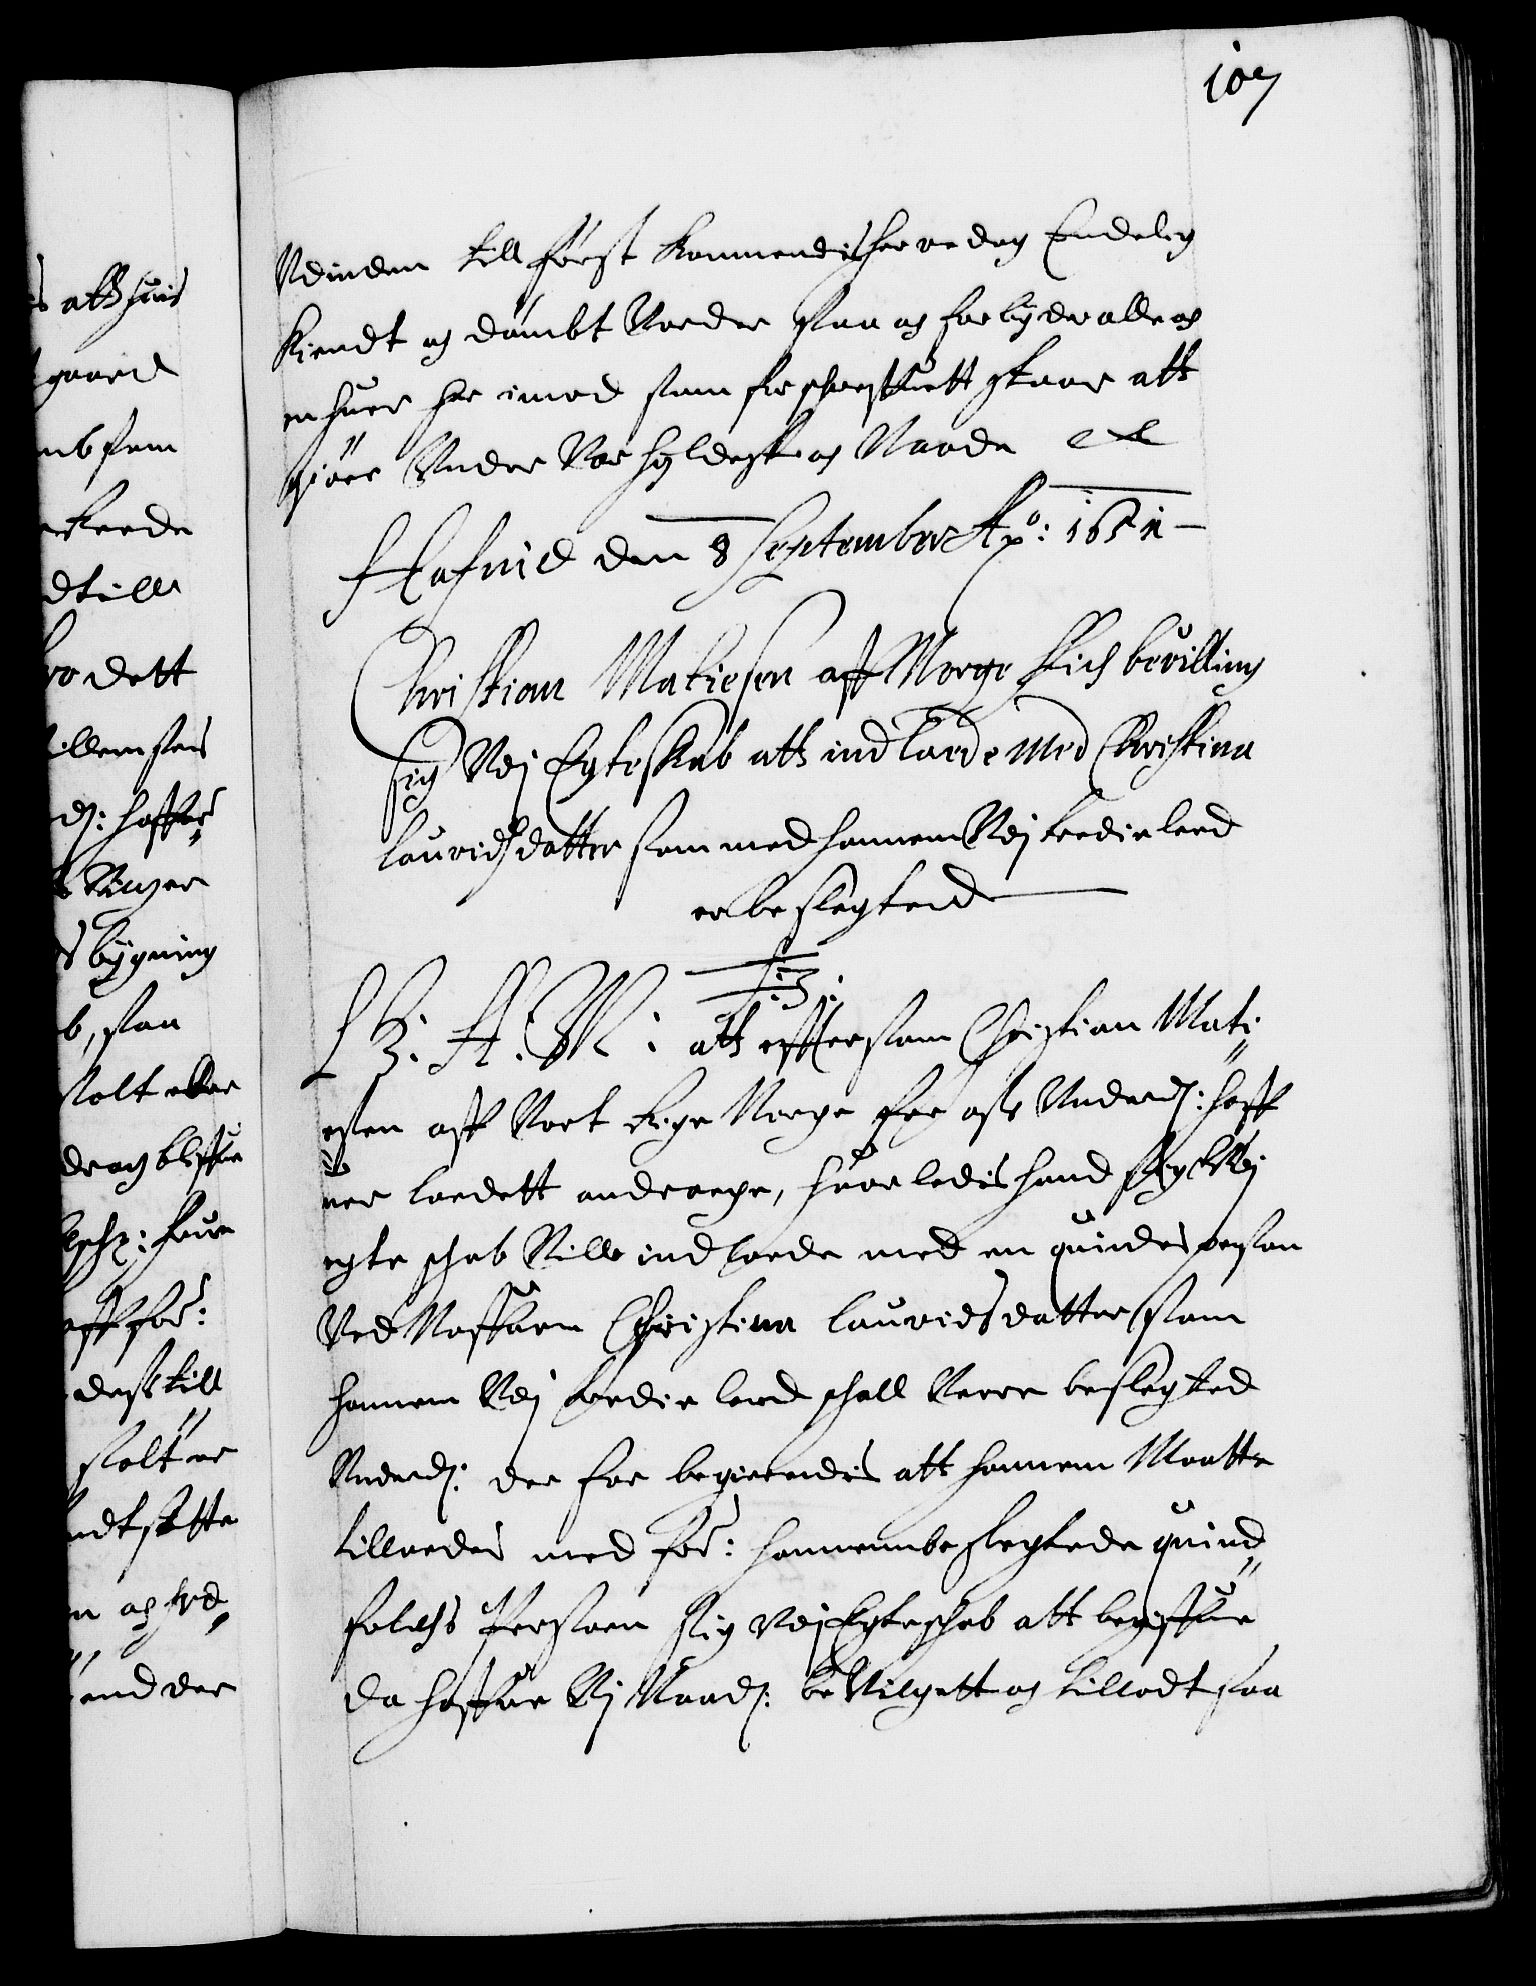 107
Vdinden till først kommendis herre dag Endelig
kiendt og dömbt Vorder staa og forbyder alle og
enhuer her imod som forschreffuett staar att
giöre Vnder Vor hyldest og Naade etc
Hafniæ den 8 September Ao: 1651
Christian Matiesen aff Norge Fich bevilling
sig Vdj Egteskab att indlade med Christina
Lauridsdatter som med hannem Vdj tredie leed
er beslegted
F: 3.
G. A. W: att effterson Christian Mati
esen aff Vort Rige Norge for oss Vnderd: haff
uer ladett andrage, huorledis hand sig Vdj
egteschab Ville indlade med en quindes person
Ved Naffuen Christina Lauridsdatter som
hannem Vdj tredie leed schall Verre beslegted
Vnderd: der for begierendis att hannem Maatte
tillades med for: hannem beslegtede quind
folchs Persoen sig Vdj Egteschab att begiffue
da haffuer Vj Naad: beVilgett og tilladt saa
s att huis
gaard
dtill
dett
d: haffuer
bygning
stolt
og bliffue
aff for:
dess till
stolt
sette
n og
end der